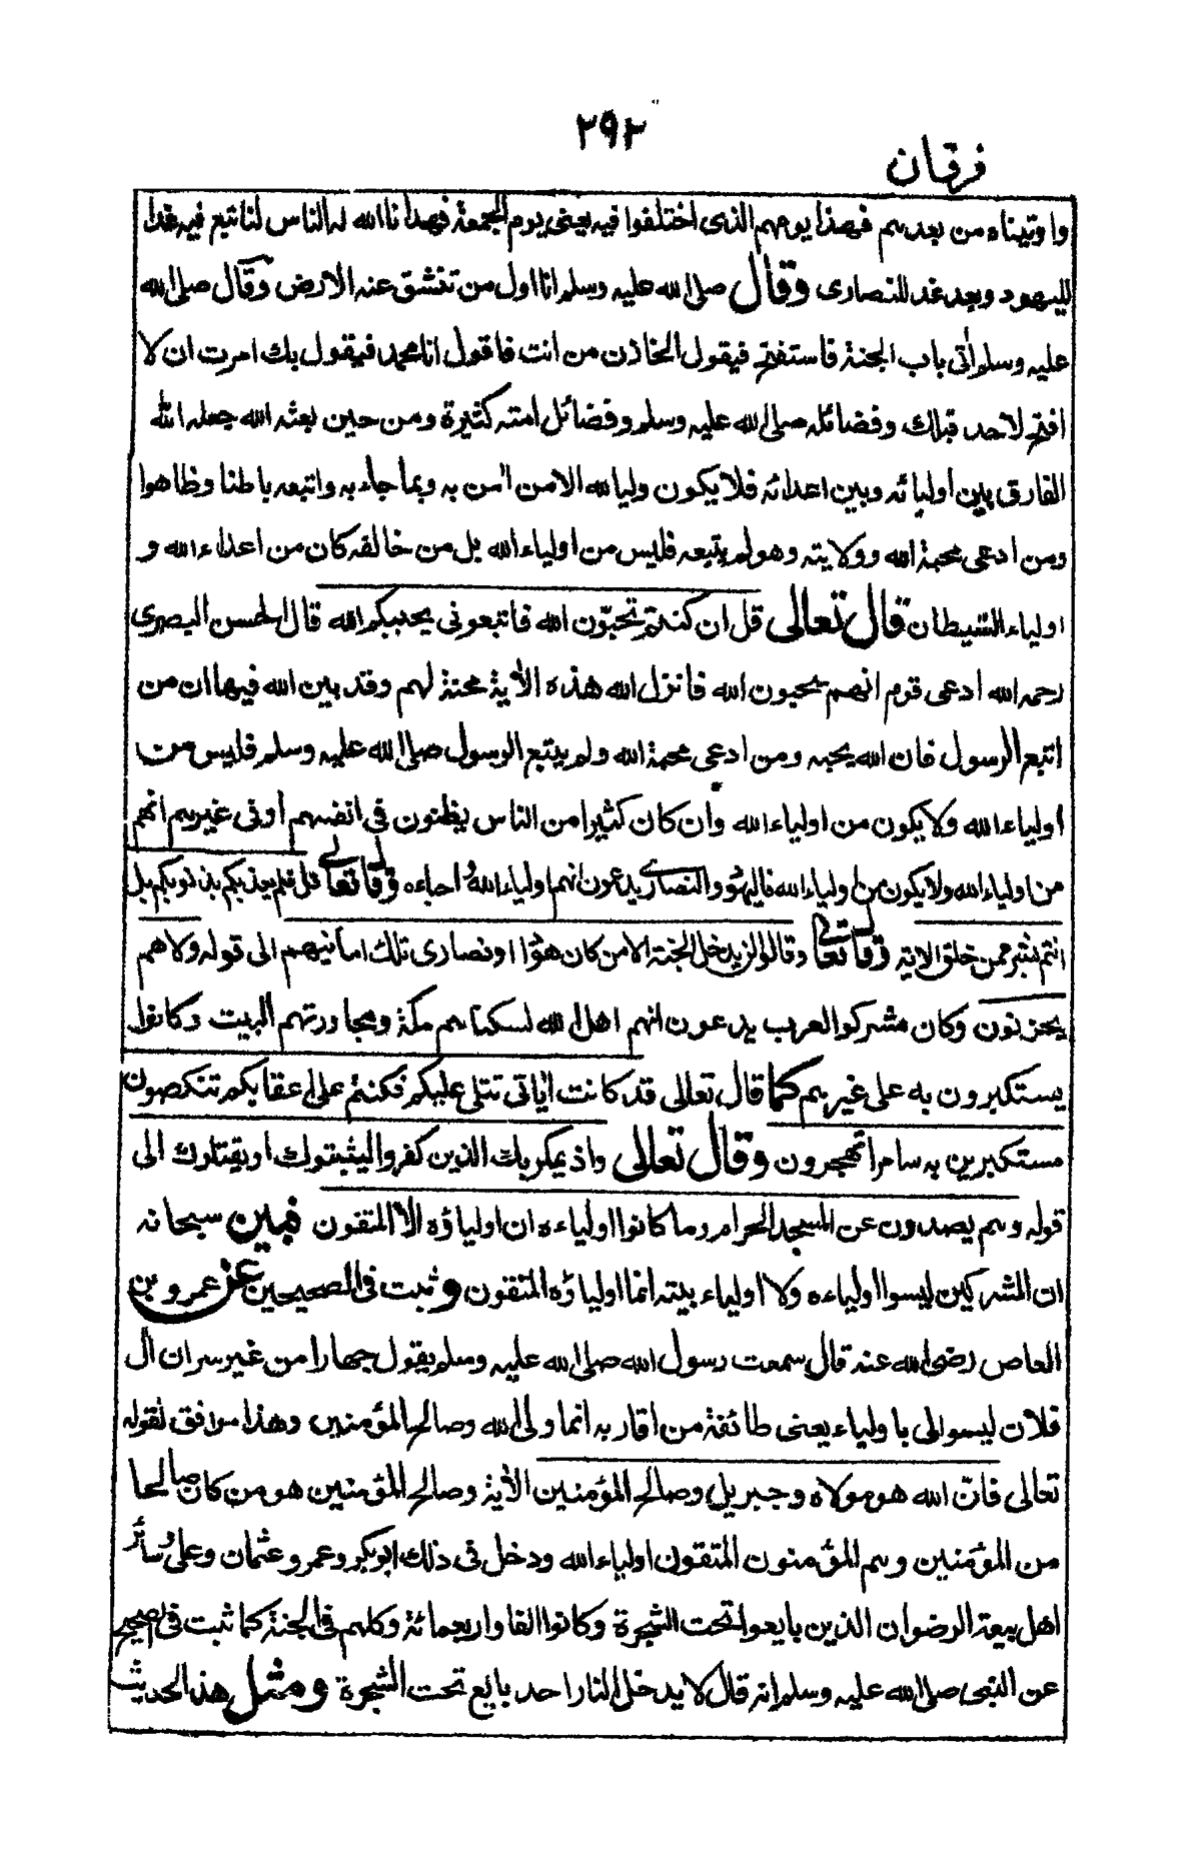 ۲۹۲
فرقان
واوتيناه من بعدهم فهذا يومهم الذى اختلفوا فيه يعنى يوم الجمعة فهدانا الله له الناس لنا تبع فيه غدا
لليهود وبعد غد للنصارى وقال صلى الله عليه وسلم انا اول من تنشق عنه الارض وقال صلى الله
عليه وسلم اٰتى باب الجنة فاستفتح فيقول الخازن من انت فاقول انا محمد فيقول بك امرت ان لا
افتح لاحد قبلك وفضائله صلى الله عليه وسلم وفضائل امته كثيرة ومن حين بعثه الله جعله الله
الفارق بين اوليائه وبين اعدائه فلا يكون وليا لله الا من اٰمن به وبما جاء به واتبعه باطنا وظاهرا
ومن ادعى محبة الله وولايته وهو لم يتبعه فليس من اولياء الله بل من خالفه كان من اعداء الله و
اولياء الشيطان قال تعالى قل ان كنتم تحبّون الله فاتبعونى يحببكم الله قال الحسن البصرى
رحمه الله ادعى قوم انهم يحبون الله فانزل الله هذه الاٰية محنة لهم وقد بين الله فيها ان من
اتبع الرسول فان الله يحبه ومن ادعى محبة الله ولم يتبع الرسول صلى الله عليه وسلم فليس من
اولياء الله ولا يكون من اولياء الله وان كان كثيرا من الناس يظنون فى انفسهم او فى غيرهم انهم
من اولياء الله ولا يكون من اولياء الله فاليهود والنصارى يدعون انهم اولياء الله واحباءه وقال تعالى قل فلم يعذبكم بذنوبكم بل
انتم بشر ممن خلق الاية وقال تعالى وقالوا لن يدخل الجنة الا من كان هودا او نصارى تلك امانيهم الى قوله ولا هم
يحزنون وكان مشركوا العرب يدعون انهم اهل الله لسكناهم مكة ومجاورتهم البيت وكانوا
يستكبرون به على غيرهم كما قال تعالى قد كانت اٰياتى تتلى عليكم فكنتم على اعقابكم تنكصون
مستكبرين به سامرا تهجرون وقال تعالى واذ يمكر بك الذين كفروا ليثبتوك او يقتلوك الى
قوله وهم يصدون عن المسجد الحرام وما كانوا اولياءه ان اولياؤه الا المتقون فبين سبحانه
ان المشركين ليسوا اولياءه ولا اولياء بيته انما اولياؤه المتقون وثبت فى الصحيحين عن عمرو بن
العاص رضى الله عنه قال سمعت رسول الله صلى الله عليه وسلم يقول جهارا من غير سر ان اٰل
فلان ليسوا لى باولياء يعنى طائفة من اقاربه انما ولى الله وصالح المؤمنين وهذا موافق لقوله
تعالى فانّ الله هو مولاه وجبريل وصالح المؤمنين الاٰية وصالح المؤمنين هو من كان صالحا
من المؤمنين وهم المؤمنون المتقون اولياء الله ودخل فى ذلك ابوبكر وعمر وعثمان وعلى وسائر
اهل بيعة الرضوان الذين بايعوا تحت الشجرة وكانوا الفا واربعمائة وكلهم فى الجنة كما ثبت فى الصحيح
عن النبى صلى الله عليه وسلم انه قال لا يدخل النار احد بايع تحت الشجرة ومثل هذا الحديث